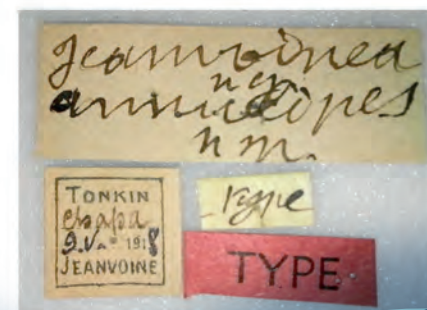 Jeanvoinea
n g.
annulipes
n sp.
TONKIN
Chapa
9.V. 1918
JEANVOINE
Type
TYPE